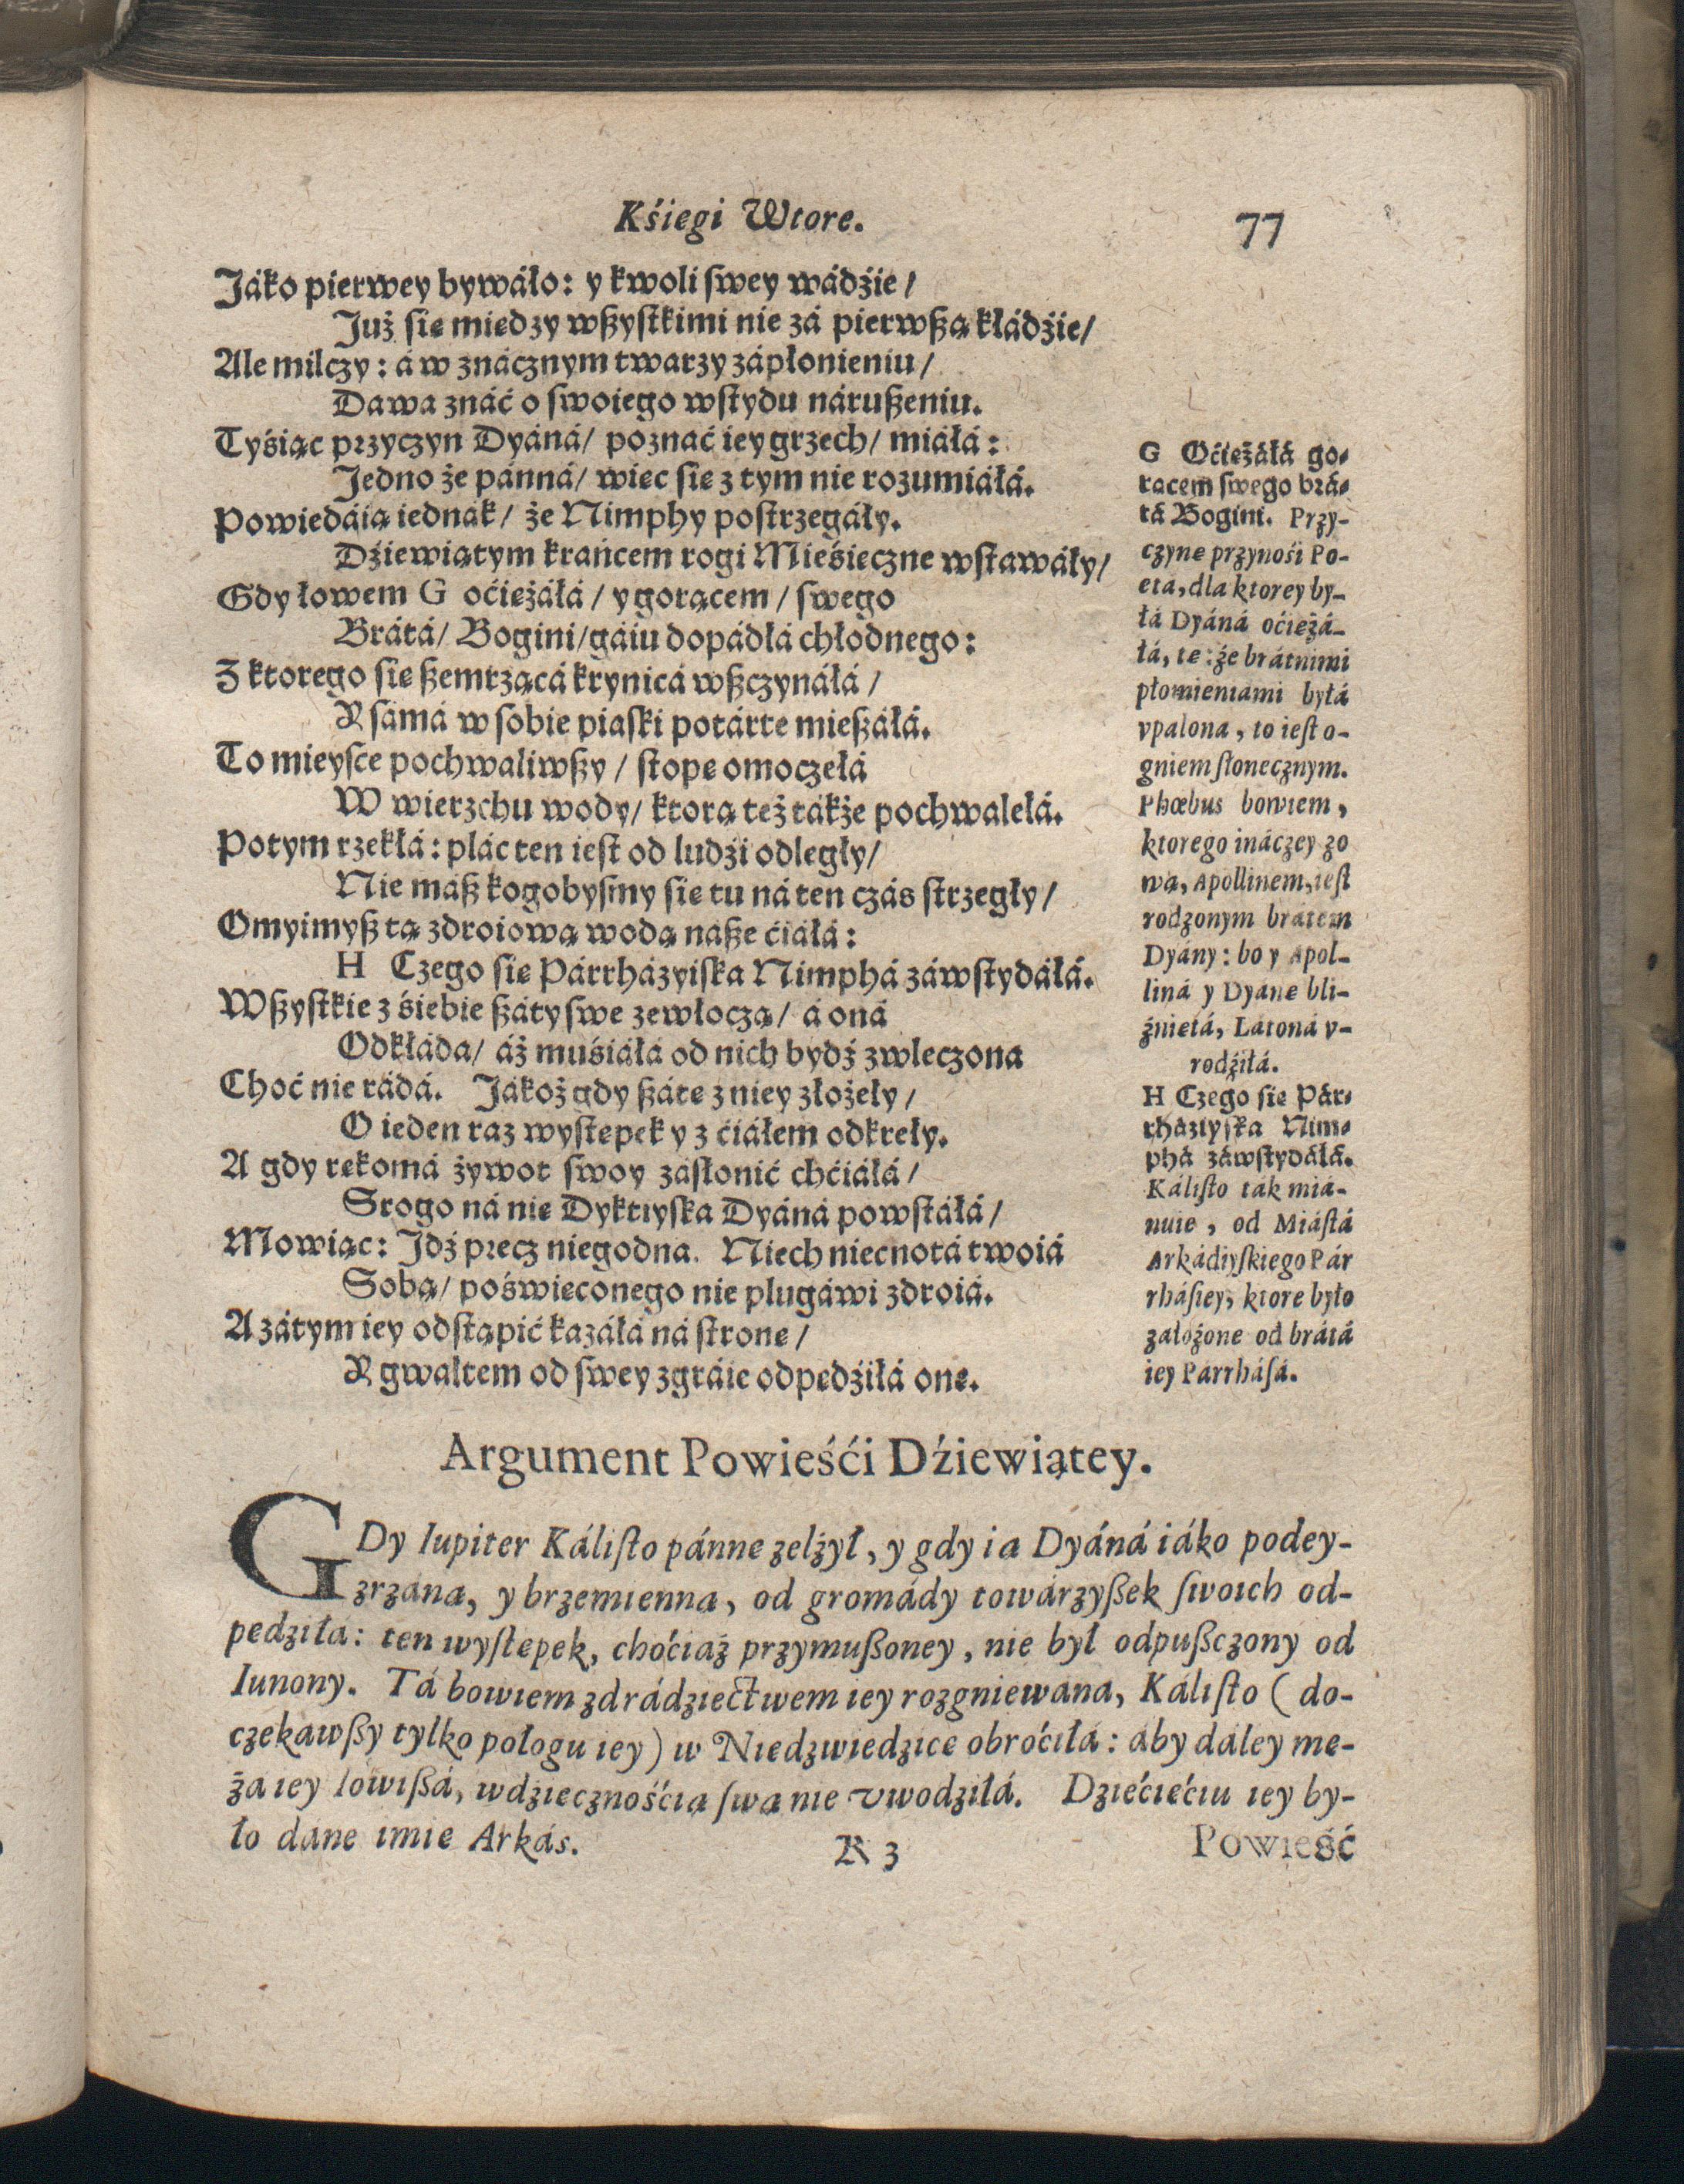 Kśiegi Wtore.
77
Jáko pierwey bywáło: y kwoli swey wádźie /
Już sie miedzy wßystkimi nie zá pierwßą kłádźie/
Ale milczy: á w znácznym twarzy zápłonieniu /
Dawa znáć o swoiego wstydu nárußeniu.
Tyśiąc przyczyn Dyáná/ poznać iey grzech/ miáłá:
Jedno że pánná/ wiec sie z tym nie rozumiáłá.
Powiedáią iednak/ że Nimphy postrzegáły.
Dźiewiątym krańcem rogi Mieśieczne wstawáły/
Gdy łowem G oćieżáłá / y gorącem / swego
Brátá/ Bogini/ gáiu dopádłá chłodnego:
Z ktorego sie ßemrzącá krynicá wßczynáłá /
Y sámá w sobie piaski potárte mießáłá.
To mieysce pochwaliwßy / stope omoczełá
W wierzchu wody/ ktorą też tákże pochwalełá.
Potym rzekłá: plác ten iest od ludźi odległy/
Nie máß kogobysmy sie tu ná ten czás strzegły/
Omyimyß tą zdroiową wodą náße ćiáłá:
H Czego sie Párrházyiska Nimphá záwstydáłá.
Wßystkie z śiebie ßáty swe zewłoczą/ á oná
Odkłáda/ áż muśiáłá od nich bydź zwleczona
Choć nie rádá. Jákoż gdy ßáte z niey złożeły /
O ieden raz wystepek y z ćiáłem odkreły.
A gdy rekomá żywot swoy zásłonić chćiáłá /
Srogo ná nie Dyktiyska Dyáná powstáłá /
Mowiąc: Jdź precz niegodna. Niech niecnotá twoiá
Sobą/ poświeconego nie plugáwi zdroiá.
A zátym iey odstąpić kazáłá ná strone /
Y gwałtem od swey zgráie odpedźiłá one.
G Oćieżáłá go-
racem swego brá-
tá Bogini. Przy-
czyne przynośi Po-
eta, dla ktorey by-
łá Dyáná oćieżá-
łá, te: że brátnimi
płomieniami byłá
vpalona, to iest o-
gniem słonecznym.
Phœbus bowiem,
ktorego ináczey zo
wą, Apollinem, iest
rodzonym bratem
Dyány: bo y Apol-
liná y Dyáne bli-
źnietá, Latoná v-
rodźiłá.
H Czego sie Pár-
rháziyska Nim-
phá záwstydáłá.
Kálisto ták miá-
nuie, od Miástá
Arkádiyskiego Pár
rhásiey, ktore było
założone od brátá
iey Párrhásá.
Argument Powieśći Dźiewiątey.
GDy Iupiter Kálisto pánne zelżył, y gdy ia Dyáná iáko podey-
zrzana, y brzemienna, od gromády towárzyßek swoich od-
pedziła: ten wystepek, choćiaż przymußoney, nie był odpußczony od
Iunony. Tá bowiem zdrádziectwem iey rozgniewana, Kálisto ( do-
czekawßy tylko połogu iey) w Niedzwiedzice obroćiła: aby daley me-
ża iey lowißá, wdziecznośćią swa nie vwodziłá. Dziećiećiu iey by-
ło dane imie Arkás.
K 3
Powieść